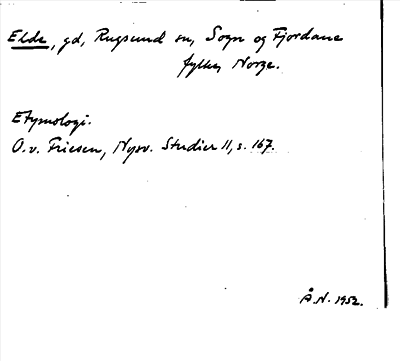 Elde, gd, Rugsund sn, Sogn og Fjordane
fylke, Norge.
Etymologi.
O.v. Friesen, Nysv. Studier 11, s. 167.
Å.N. 1952.